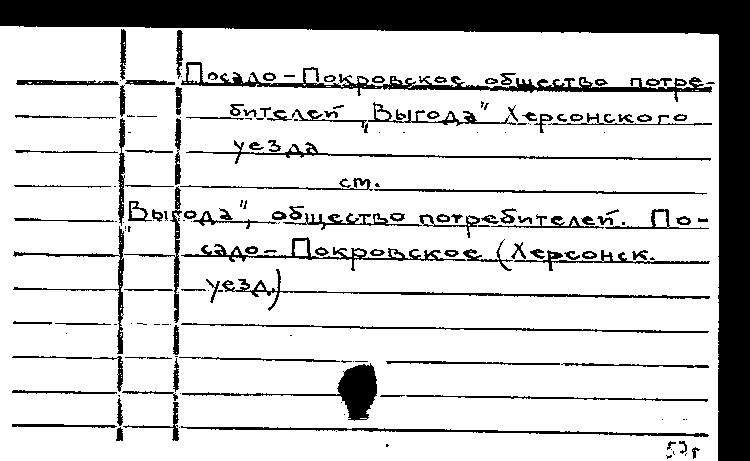 Посадо-Покровское общество потре-
бителей „Выгода" Херсонского
уезда
ст.
„Выгода", общество потребителей. По-
садо-Покровское (Херсонск.
уезд.)
57г